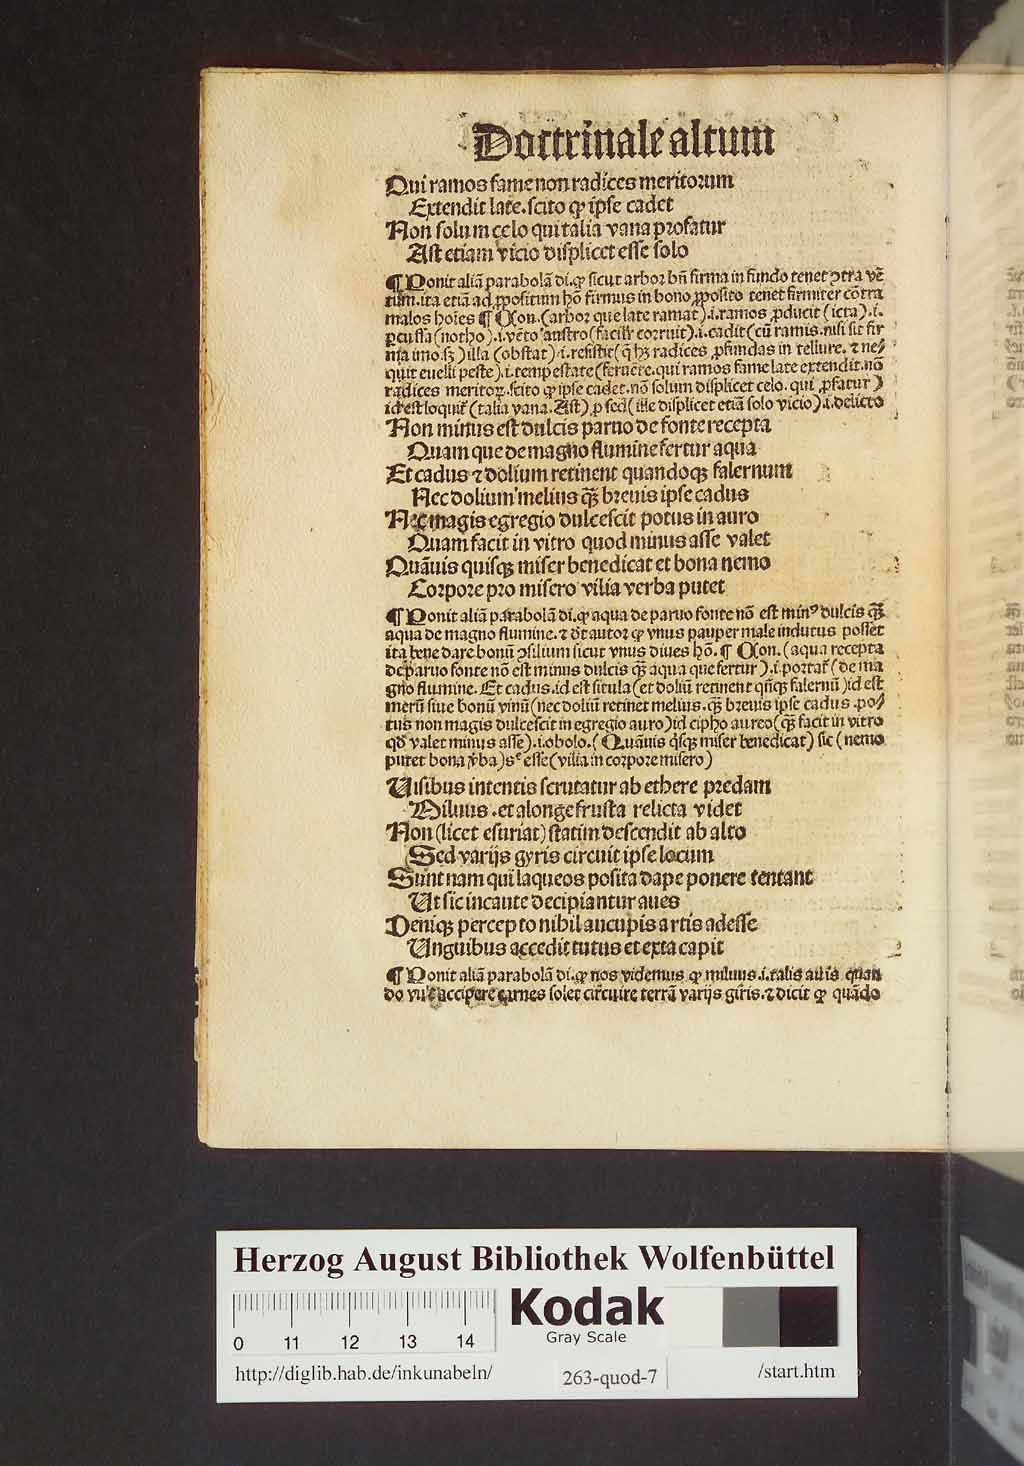 Doctrinale altum
Qui ramos fame non radices meritorum
Extendit late. scito ꝙ ipse cadet
Non solum celo qui talia vana profatur
Ast etiam vicio displicet esse solo
¶ Ponit aliā parabolā di. ꝙ sicut arbor bn̄ firma in fundo tenet ↄtra vē
tum. ita etiā ad ꝓpositum hō firmus in bono ꝓposito tenet firmiter cōtra
malos hoīes ¶ Con. (arbor que late ramat) .i. ramos ꝓducit (icta) .i.
ꝑcussa (notho) .i. vēto austro (facilr̄ corruit) .i. cadit (cū ramis. nisi sit fir
ma imo sꝫ) illa (obstat) .i. resistit (q̄ hꝫ radices ꝓfundas in tellure. ⁊ ne⸗
quit euelli peste) .i. tempestate (feruēte. qui ramos fame late extendit. nō
radices meritoꝝ. scito ꝙ ipse cadet. nō solum displicet celo. qui ꝓfatur)
id est loquit̄ (talia vana. Ast) ꝓ sed (ille displicet etiā solo vicio) .i. delicto
Non minus est dulcis paruo de fonte recepta
Quam que de magno flumine fertur aqua
Et cadus ⁊ dolium retinent quandoqꝫ falernum
Nec dolium melius q̄ꝫ breuis ipse cadus
Nec magis egregio dulcescit potus in auro
Quam facit in vitro quod minus asse valet
Quāuis quisqꝫ miser benedicat et bona nemo
Corpore pro misero vilia verba putet
¶ Ponit aliā parabolā di. ꝙ aqua de paruo fonte nō est minꝰ dulcis q̄ꝫ
aqua de magno flumine. ⁊ dt̄ autor ꝙ vnus pauper male indutus posset
ita bene dare bonū ↄsilium sicut vnus diues hō. ¶ Con. (aqua recepta
de paruo fonte nō est minus dulcis q̄ꝫ aqua que fertur) .i. portat̄ (de ma
gno flumine. Et cadus. id est situla (et doliū retinent qn̄qꝫ falernū) id est
merū siue bonū vinū (nec doliū retinet melius. q̄ꝫ breuis ipse cadus. po⸗
tus non magis dulcescit in egregio auro) id cipho aureo (q̄ꝫ facit in vitro
qd̄ valet minus asse) .i. obolo. (Quāuis q̇sqꝫ miser benedicat) sic (nemo
putet bona v̄ba) sᶜ esse (vilia in corpore misero)
Visibus intentis scrutatur ab ethere predam
Miluus. et a longe frusta relicta videt
Non (licet esuriat) statim descendit ab alto
Sed varijs gyris circuit ipse locum
Sunt nam qui laqueos posita dape ponere tentant
Ut sic incaute decipiantur aues
Deniqꝫ percepto nihil aucupis artis adesse
Unguibus accedit tutus et exta capit
¶ Ponit aliā parabolā di. ꝙ nos videmus ꝙ miluus .i. talis auis quan
do vult accipere carnes solet circuire terrā varijs giris. ⁊ dicit ꝙ quādo
Herzog August Bibliothek Wolfenbüttel
Kodak
Gray Scale
0 11 12 13 14
http://diglib.hab.de/inkunabeln/ 263-quod-7 /start.htm